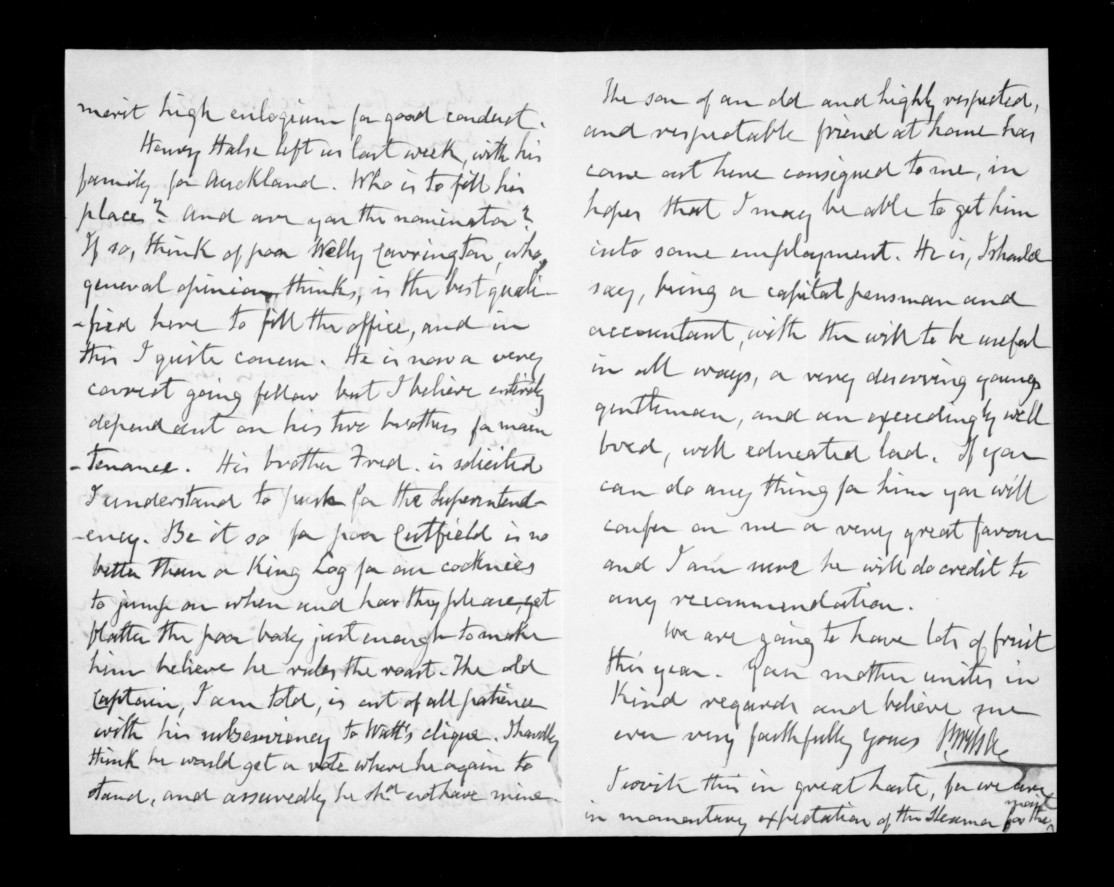 merit high eulogium for good conduct.
Henry Halse left us last week, with his
family for Auckland. Who is to fill his
place? And are you the nominator?
If so, think of poor Welly Carrington, who,
general opinion, thinks, is the best quali-
-fied here to fill the office, and in
this I quite concur. He is now a very
correct going fellow but I believe entirely
dependent on his two brothers for main
-tenance. His brother Fred. is solicited
I understand to push for the Superintend-
-ency. Be it so for poor Cutfield is no
better than a King Log for our cocknies
to jump on when and how they please, yet
flatter the poor body just enough to make
him believe he rules the roast. The old
Captain, I am told, is out of all patience
with his subserviency to Watt's clique. I hardly
think he would get a vote where he again to
stand, and assuredly he shd not have mine
The son of an old and highly respected,
and respectable friend at home has
come out here consigned to me, in
hopes that I may be able to get him
into some employment. He is, I should
say, being a capital pensman and
accountant, with the will to be useful
in all ways, a very deserving young
gentleman, and an exceedingly well
bred, well educated lad. If you
can do any thing for him you will
confer on me a very great favour
and I am sure he will do credit to
any recommendation.
We are going to have lots of fruit
this year. Your mother unites in
Kind regards and believe me
ever very faithfully yours
I write this in great haste, for we are
in momentary expectation of the Steamer for the